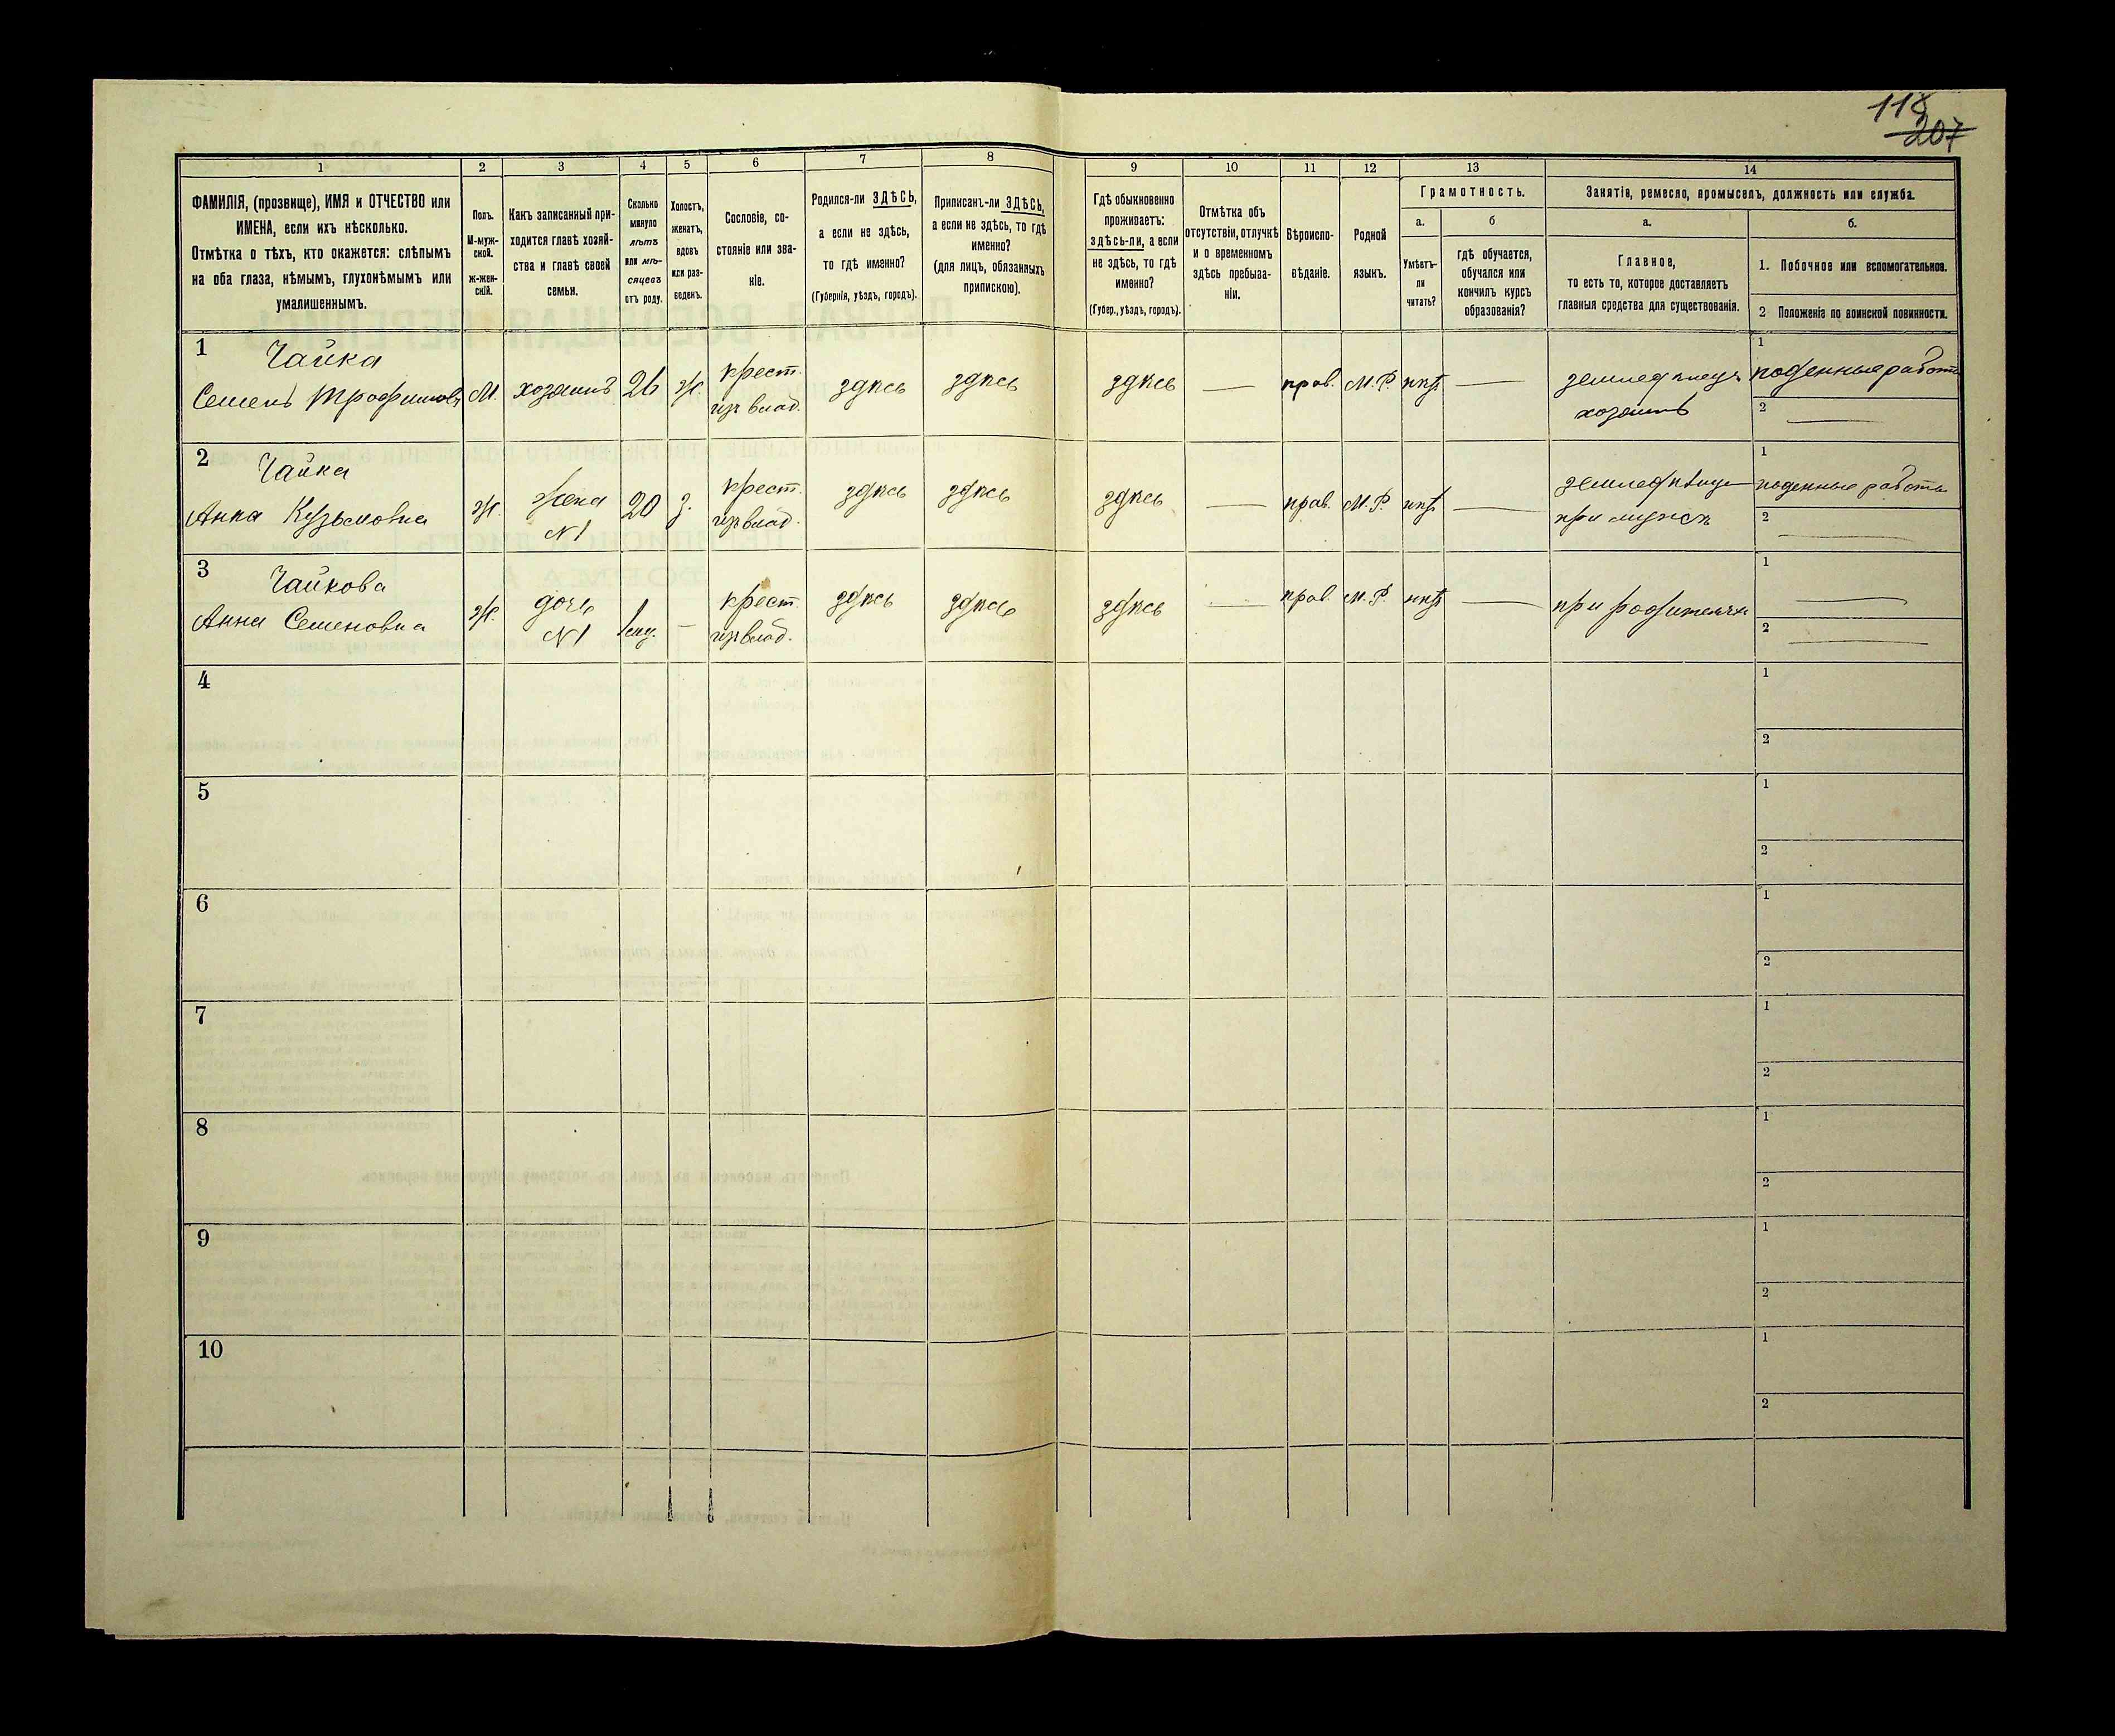 118
207
1 2 3 4 5 6 7 8 9 10 11 12 13 14
ФАМИЛІЯ, (прозвище), ИМЯ и ОТЧЕСТВО или
ИМЕНА, если ихъ нѣсколько.
Отмѣтка о тѣхъ, кто окажется: слѣпымъ
на оба глаза, нѣмымъ, глухонѣмымъ или
умалишеннымъ.
Полъ.
М-муж-
ской.
Ж-жен-
скій.
Какъ записанный при-
ходится главѣ хозяй-
ства и главѣ своей
семьи.
Сколько
минуло
лѣтъ
или мѣ-
сяцевъ
отъ роду.
Холостъ,
женатъ,
вдовъ
или раз-
веденъ.
Сословіе, со-
стояніе или зва-
ніе.
Родился-ли ЗДѢСЬ,
а если не здѣсь,
то гдѣ именно?
(Губернія, уѣздъ, городъ).
Приписанъ-ли ЗДѢСЬ,
а если не здѣсь, то гдѣ
именно?
(для лицъ, обязанныхъ
припискою).
Гдѣ обыкновенно
проживаетъ:
здѣсь-ли, а если
не здѣсь, то гдѣ
именно?
(Губер., уѣздъ, городъ).
Отмѣтка объ
отсутствіи, отлучкѣ
и о временномъ
здѣсь пребыва-
ніи.
Вѣроиспо-
вѣданіе.
Родной
языкъ.
Грамотность.
а.
Умѣетъ-
ли
читать?
б
гдѣ обучается,
обучался или
кончилъ курсъ
образованія?
Занятіе, ремесло, промыселъ, должность или служба.
а.
Главное,
то есть то, которое доставляетъ
главныя средства для существованія.
б.
1. Побочное или вспомогательное.
2 Положеніе по воинской повинности.
1 Чайка
Семенъ Трофимовъ М. хозяинъ 26 ж. крест. изъ влад. здѣсь здѣсь здѣсь — прав. М. Р. нѣтъ — земледѣлецъ хозяинъ 1 поденные работы
2 —
2 Чайка
Анна Кузьмовна ж. жена N1 20 з. крест. изъ влад. здѣсь здѣсь здѣсь — прав. М. Р. нѣтъ — при мужѣ 1 поденные работы
2 —
3 Чайкова
Анна Семеновна ж. дочь N1 — крест. изъ влад. здѣсь здѣсь здѣсь — прав. М. Р. нѣтъ — при родителяхъ 1 —
2 —
4 1
2
5 1
2
6 1
2
7 1
2
8 1
2
9 1
2
10 1
2